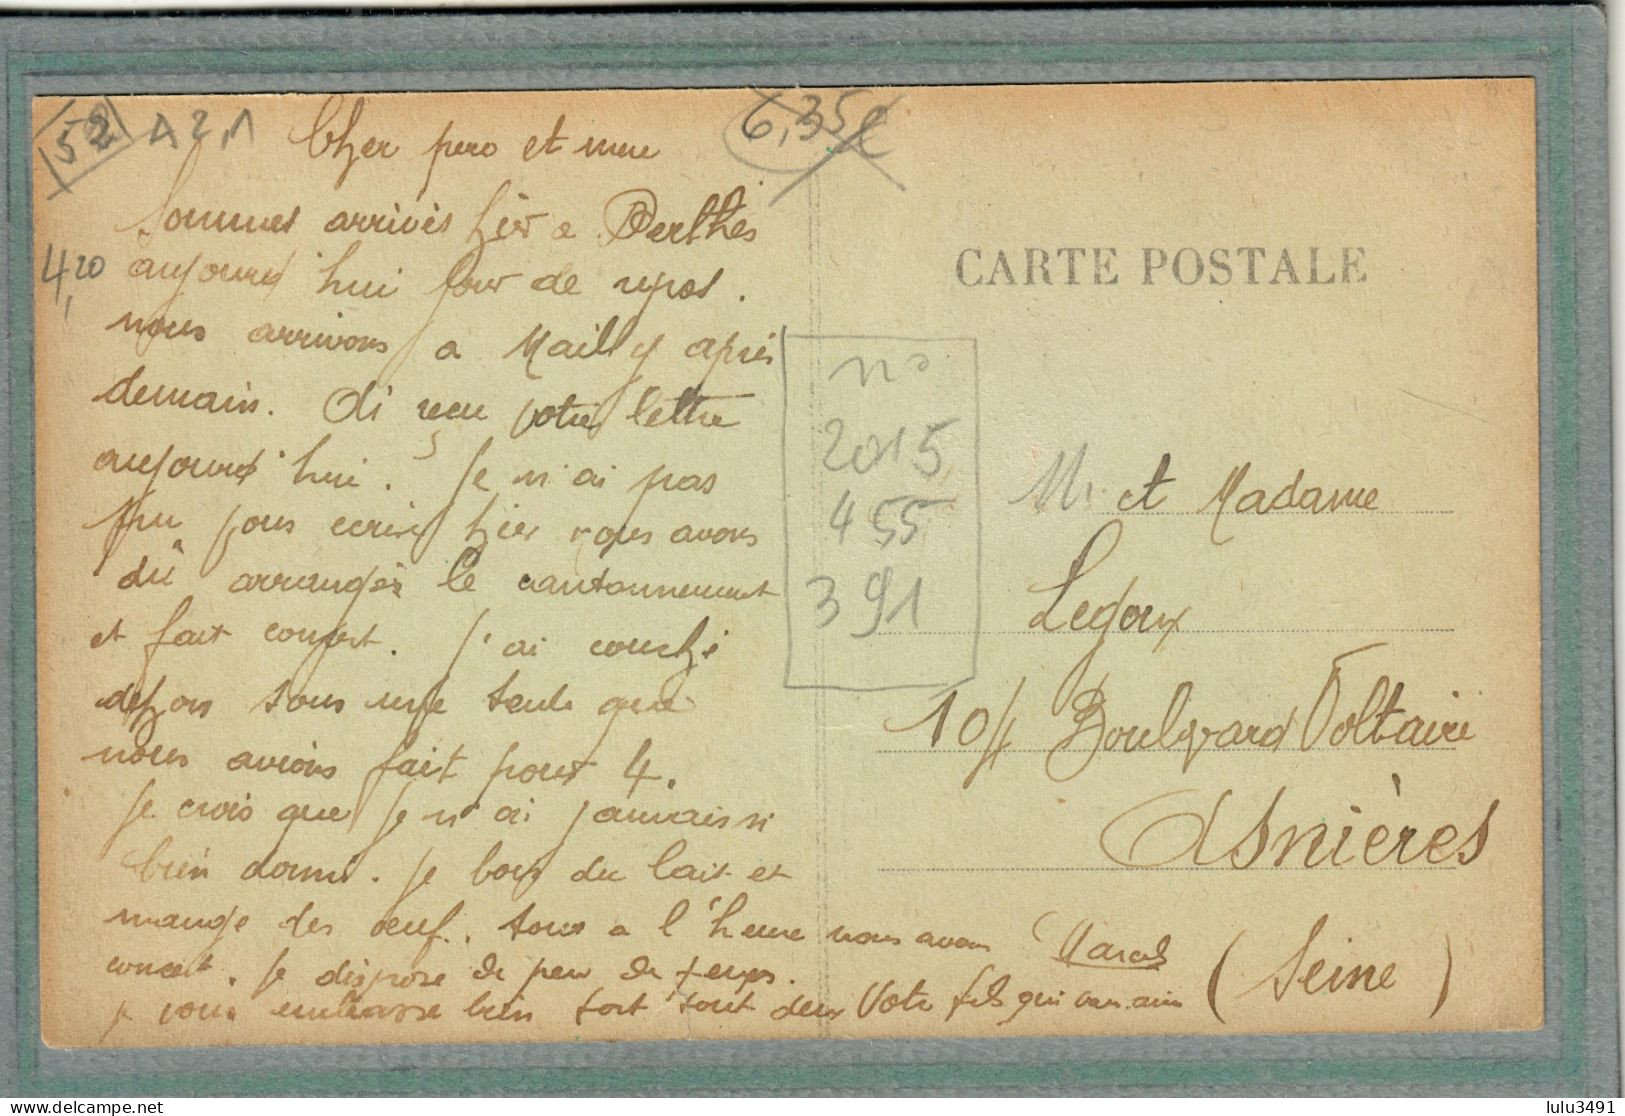 52 A 2,1
6,35 €
4,20
Cher pere et mere
Sommes arrivés hier a Perthes
aujourd'hui jour de repos.
nous arrivons a Mailly après
demain. Ai reçu votre lettre
aujourd'hui. Je n'ai pas
pu vous ecrire hier nous avons
dû arranger le cantonnement
et fait
J'ai couché
dehors sous une tente que
nous avions fait pour 4.
Je crois que je n'ai jamais si
bien dormi. Je bois du lait et
mange des oeuf. tout a l'heure nous avons
concert. Je dispose de peu de temps.
je vous embrasse bien fort tout deux Votre fils qui vous aime
Marcel
CARTE POSTALE
n°
2015
455
391
M. et Madame
Legoux
104 Boulevard Voltaire
Asnières
(Seine)
lulu3491